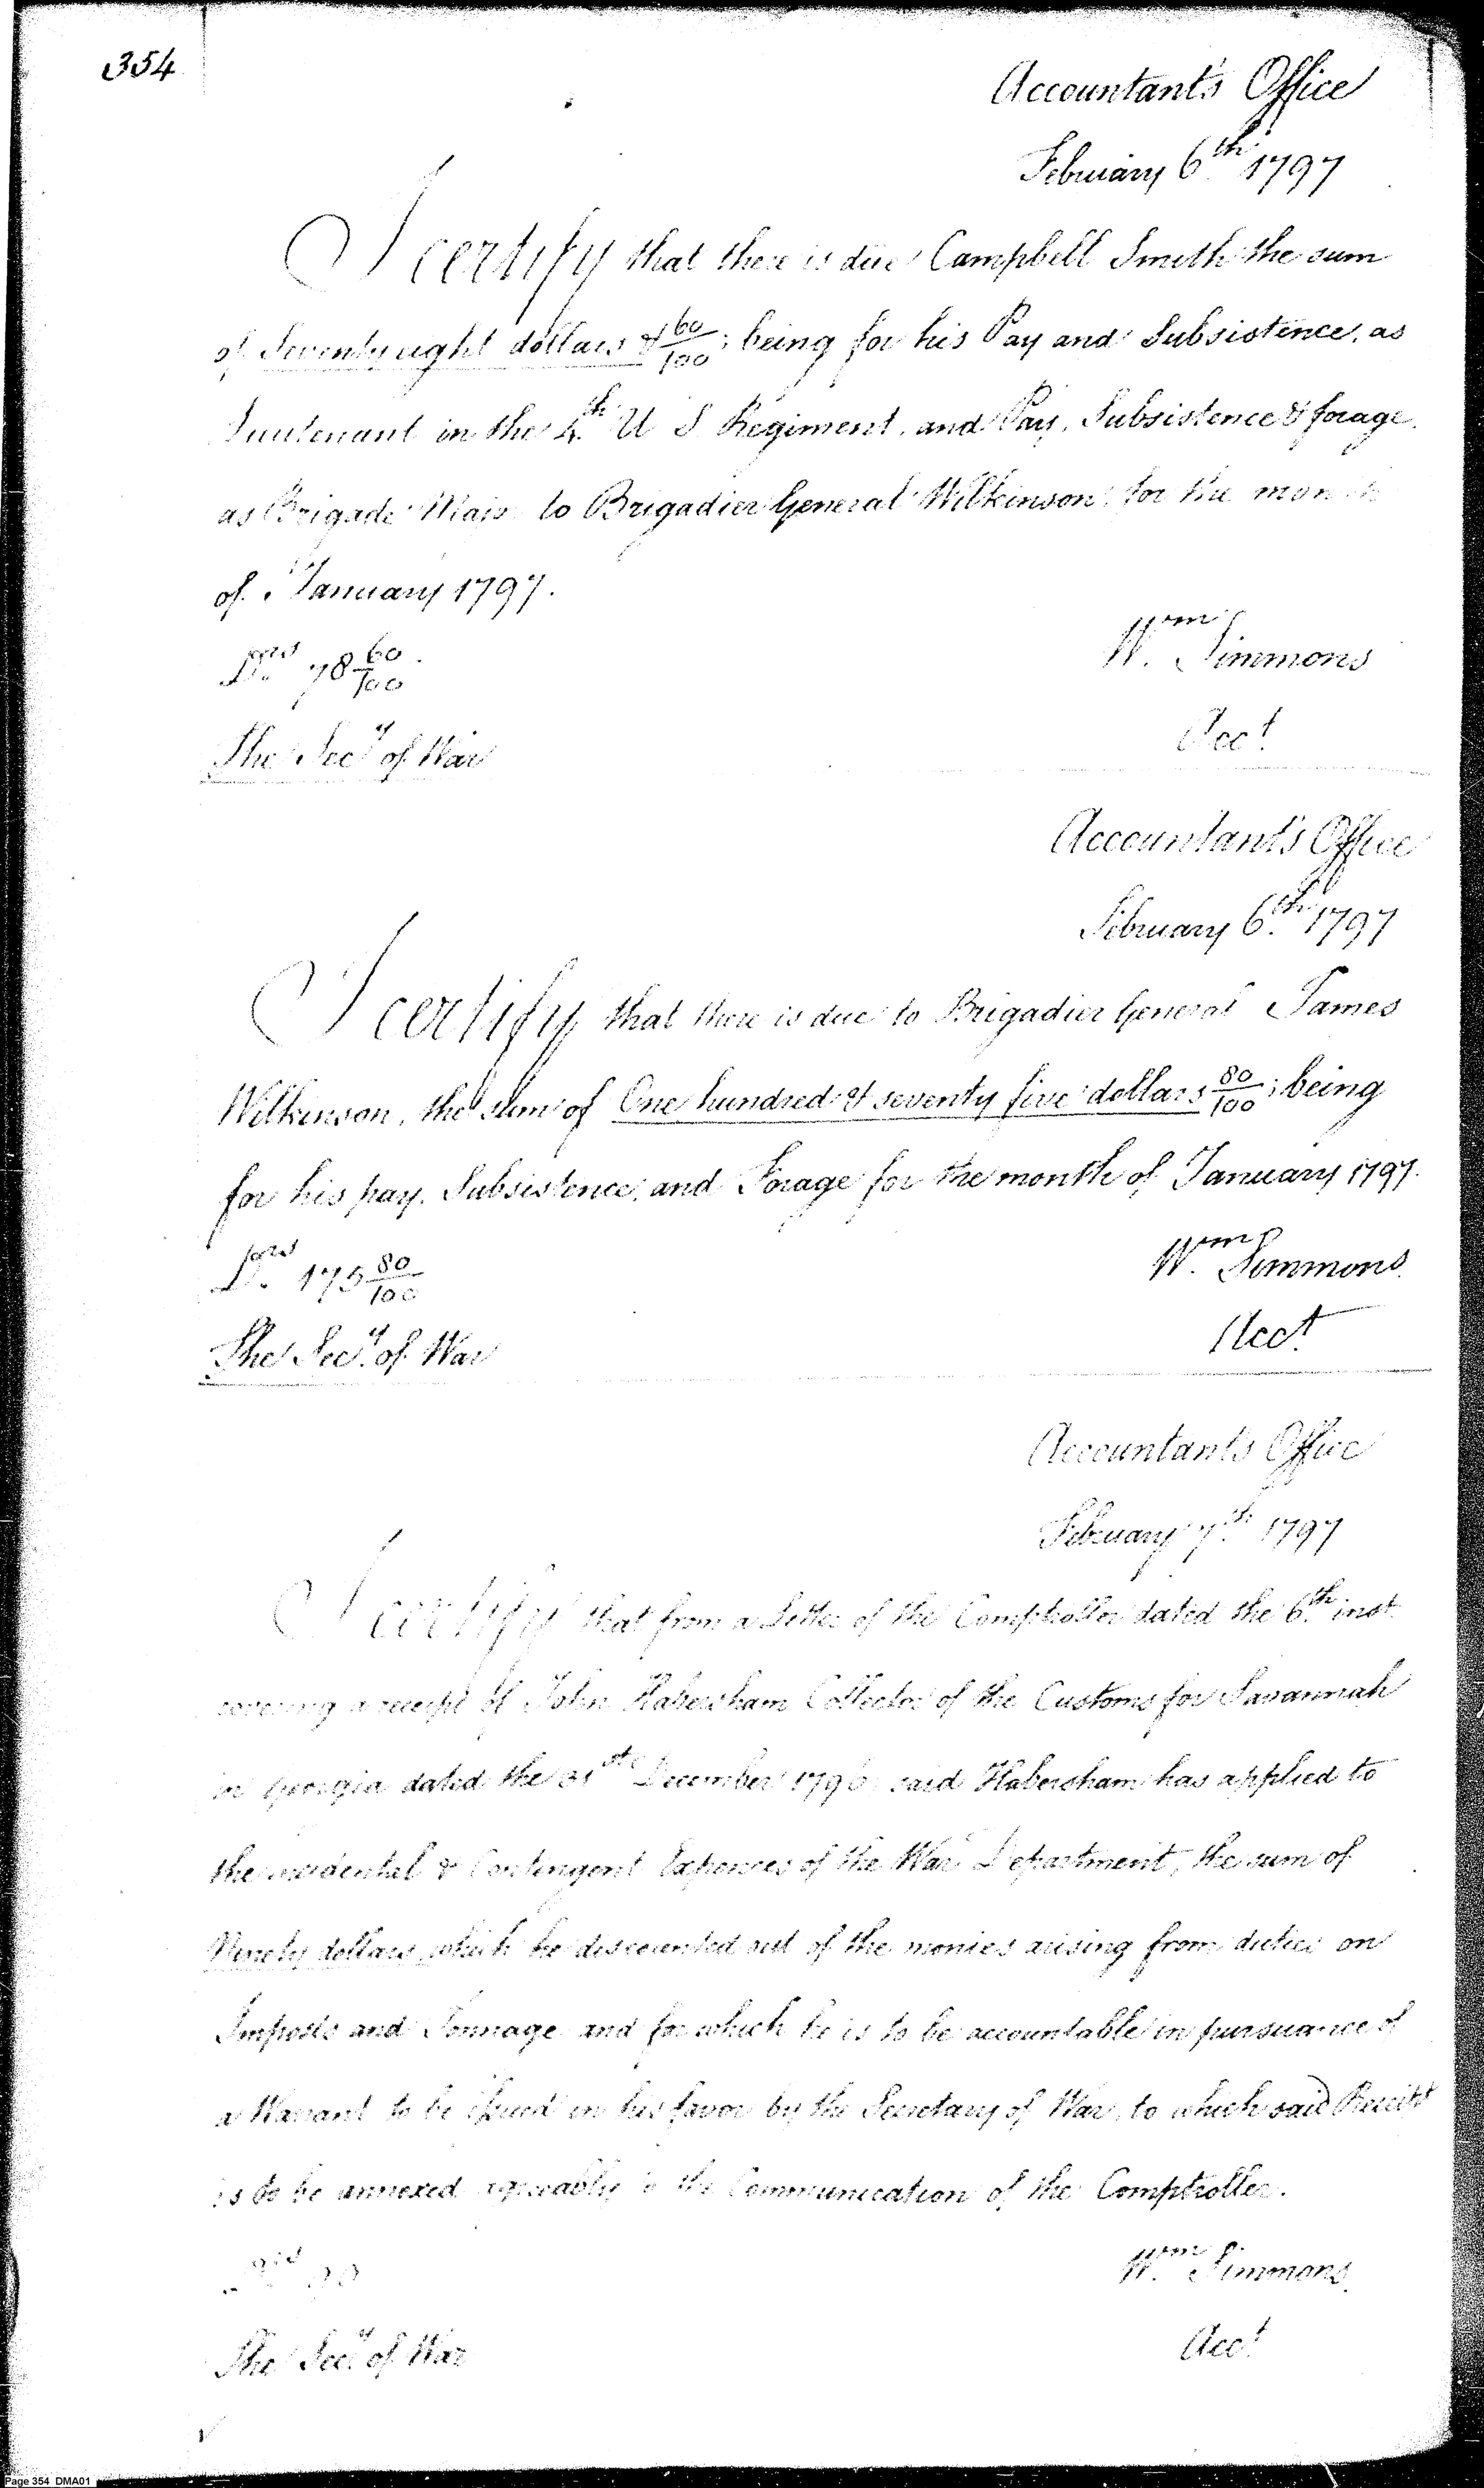 354
Accountant's Office
February 6th 1797
I certify that there is due Campbell Smith the sum
of Seventy eight dollars & 60/100; being for his Pay and Subsistence, as
Lieutenant in the 4th U S Regiment, and Pay, Subsistence & forage
as Brigade Major to Brigadier General Wilkinson for the month
of January 1797.
Dors 78 60/100
The Secy of War
Wm Simmons
Acct
Accountant's Office
February 6th 1797
I certify that there is due to Brigadier General James
Wilkinson, the sum of One hundred & seventy five dollars 80/100; being
for his pay, Subsistence, and Forage for the month of January 1797.
Dors 175 80/100
The Secy of War
Wm Simmons
Acct
Accountant's Office
February 7th 1797
I certify that from a Letter of the Comptroller dated the 6th inst
covering a receipt of John Habersham Collector of the Customs for Savannah
in Georgia dated the 31st December 1796 said Habersham has applied to
the incidental & Contingent Expences of the War Department, the sum of
Ninety dollars which he discounted out of the monies arising from duties on
Imposts and Tonnage and for which he is to be accountable in pursuance of
a Warrant to be issued in his favor by the Secretary of War, to which said Receipt
is to be annexed agreeably to the Communication of the Comptroller.
90
The Secy of War
Wm Simmons
Acct
Page 354 DMA01